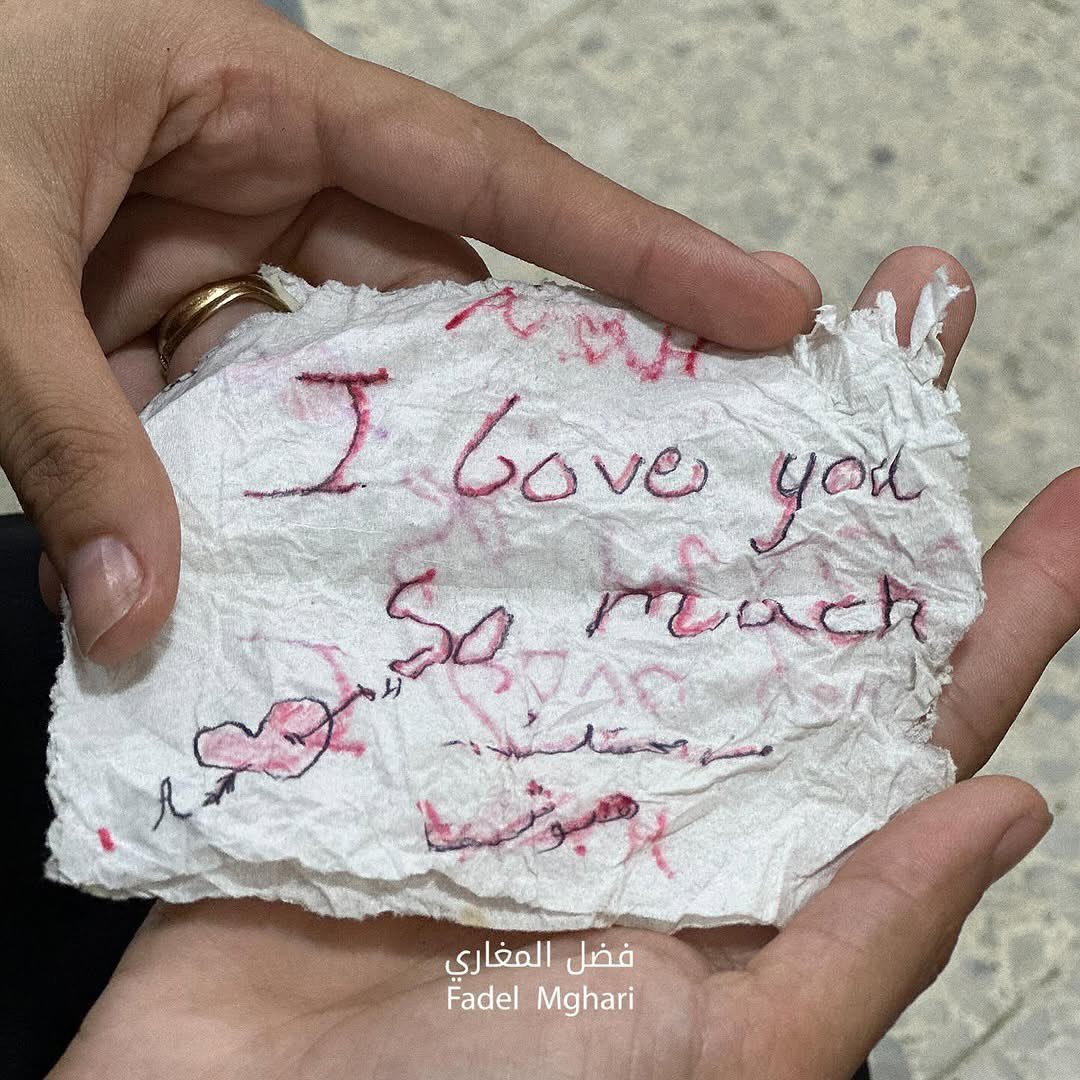 A ♡ H
I love you
So much
H
A
فضل المغاري
Fadel Mghari